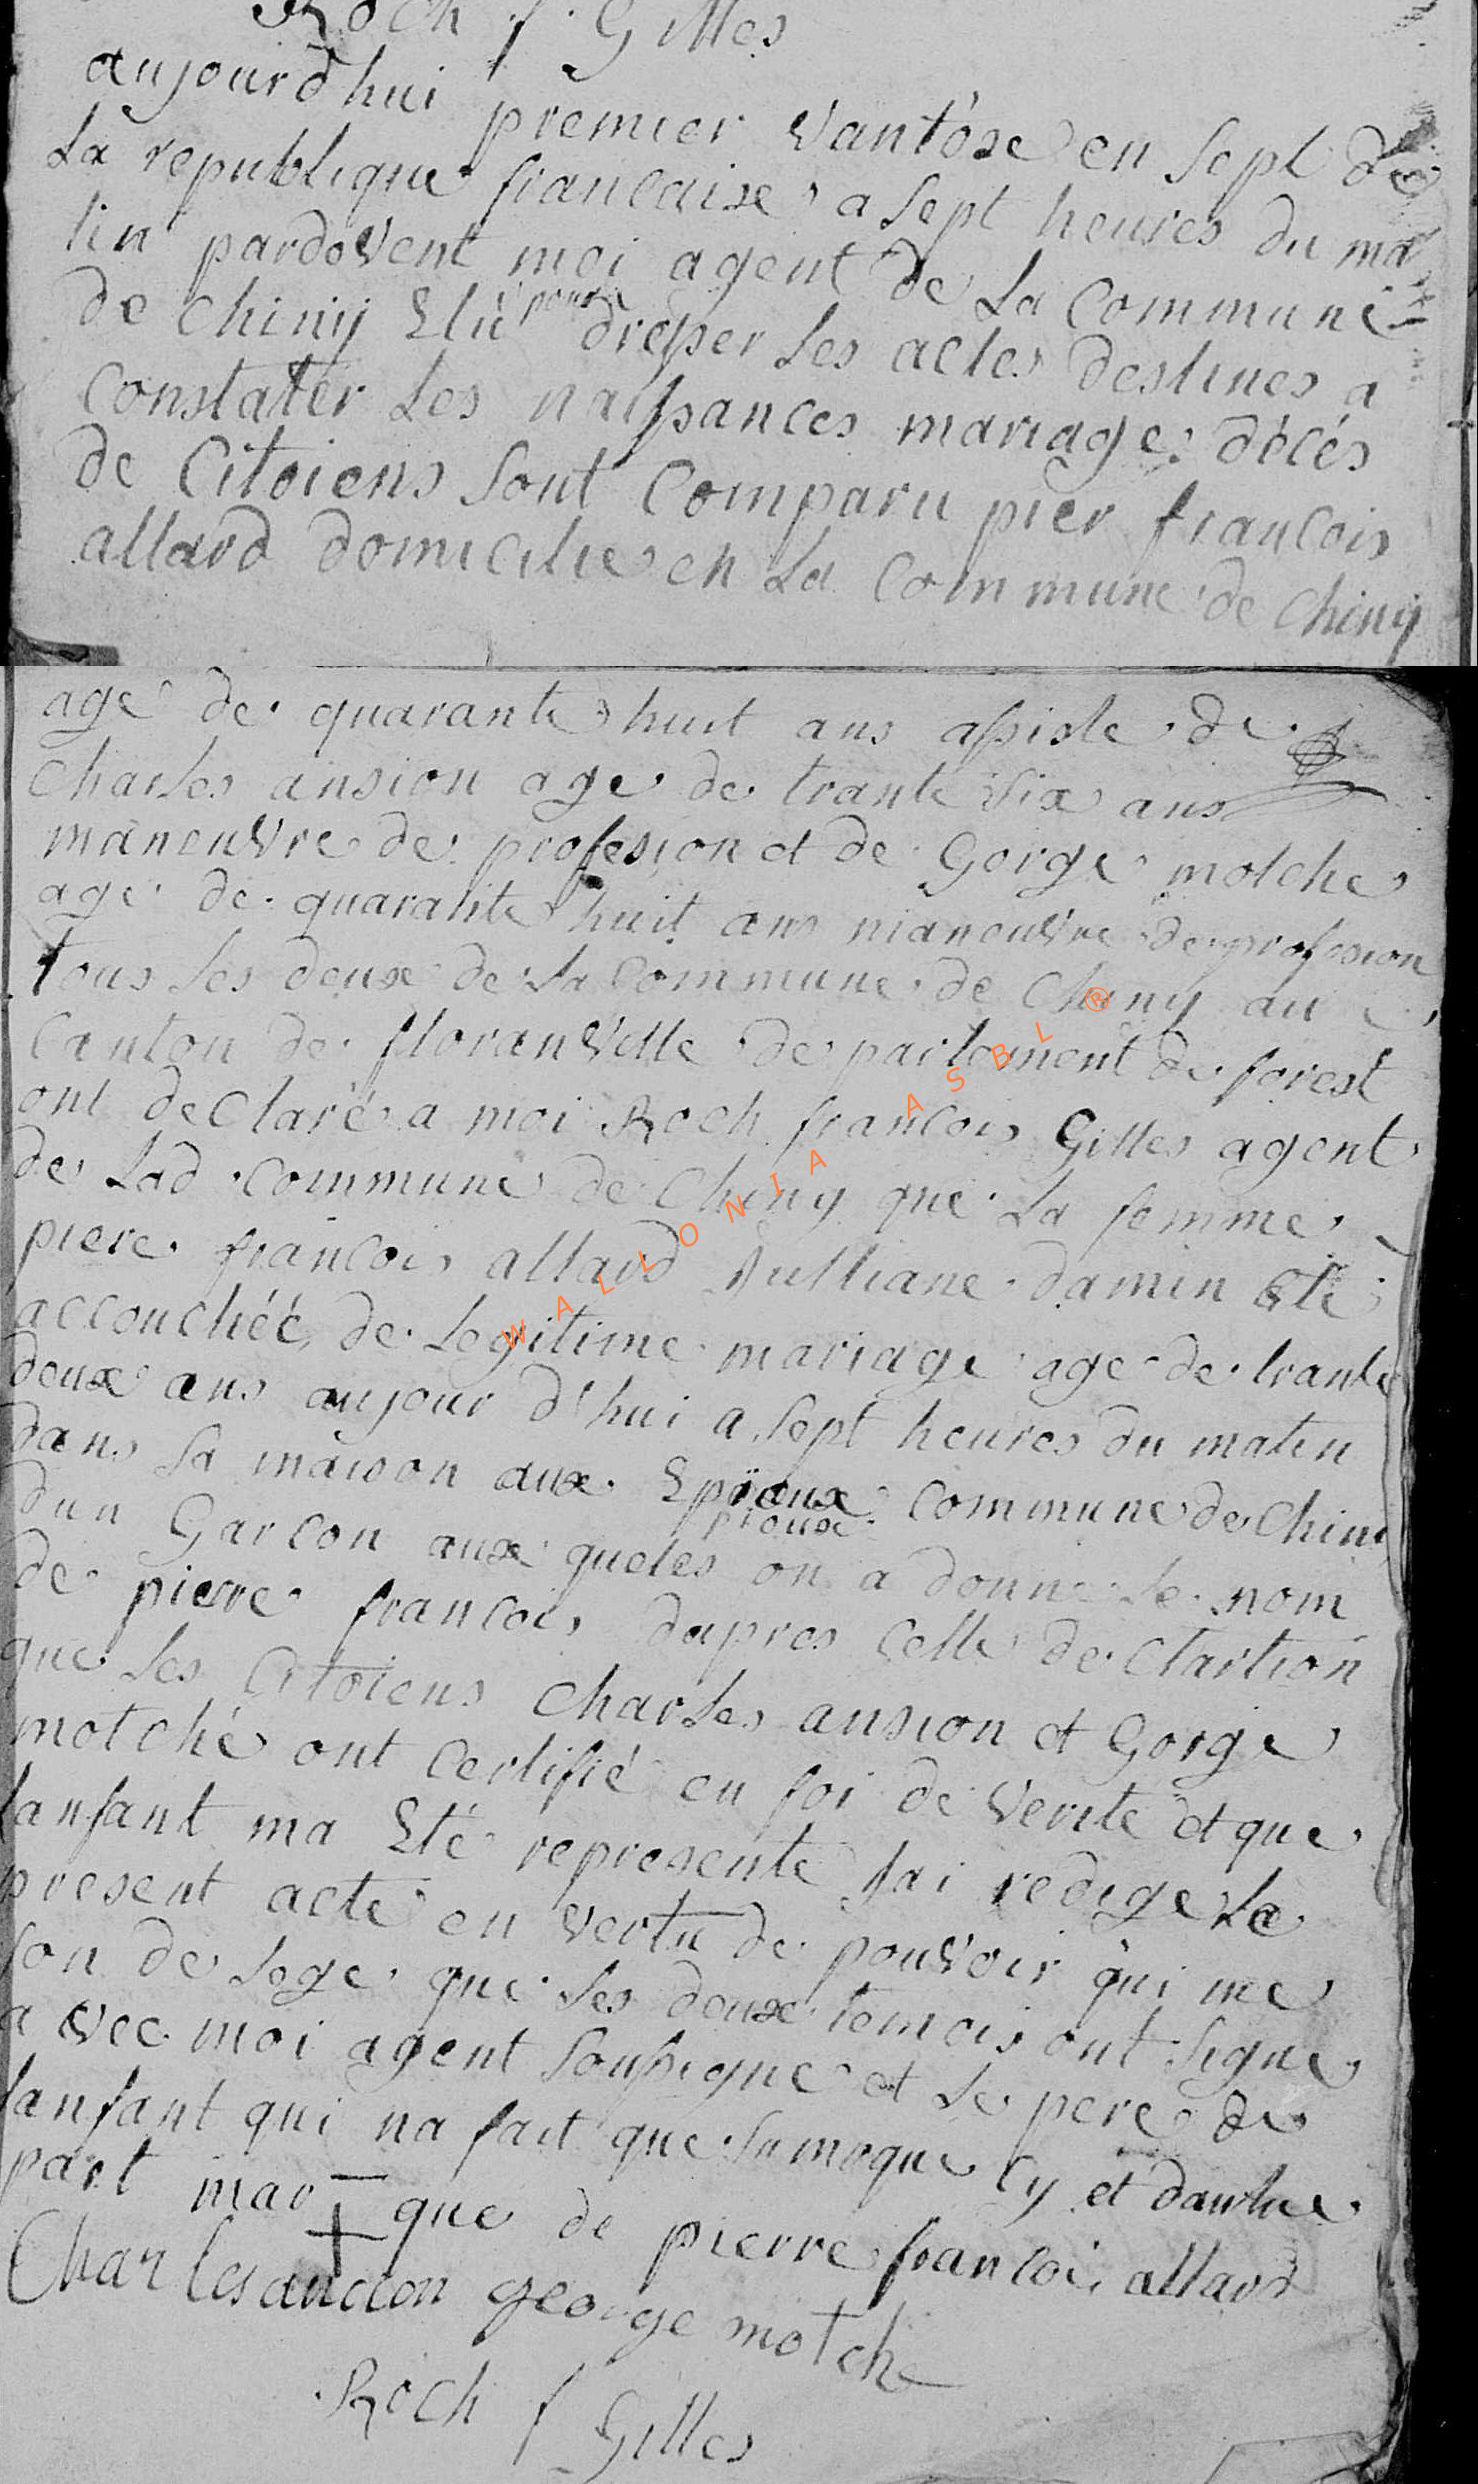 Roch f Gilles
aujourdhui premier vantose en sept de
la republique francaise a sept heures du ma
tin pardevent moi agent de la commune
de chiny Elu pour dresser les actes destines a
constater les naissances mariage décés
de Citoiens sont comparu pier francois
allard domicilie en la commune de chiny
agé de quarante huit ans assiste de
charles ansion age de trante six ans
maneuvre de profesion et de Gorge motche
age de quarante huit ans maneuvre de profesion
tous les deux de la commune de Chiny au
Canton de floranville departement de forest
ont declaré a moi Roch francois Gilles agent
de lad commune de Chiny que la femme
piere francois allard Julliane damin Eté
accouchéé de legitime mariage age de trante
deux ans aujour d'hui a sept heures du matin
dans sa maison aux Epioux commune de Chiny
pioux
dun Garcon aux queles on a donne le nom
de pierre francois dapres celle declartion
que les Citoiens charles ansion et Gorge
motché ont certifié en foi de verite et que
lanfant ma Eté represente Jai redige le
present acte en vertu de pouvoir qui me
son de lege que les deux temois ont signe
a vec moi agent soussigne et le pere de
lanfant qui na fait que sa moque cy et dautre
part mar + que de pierre francois allard
Charles ancion george motche
Roch f Gilles
WALLONIA ASBL ®